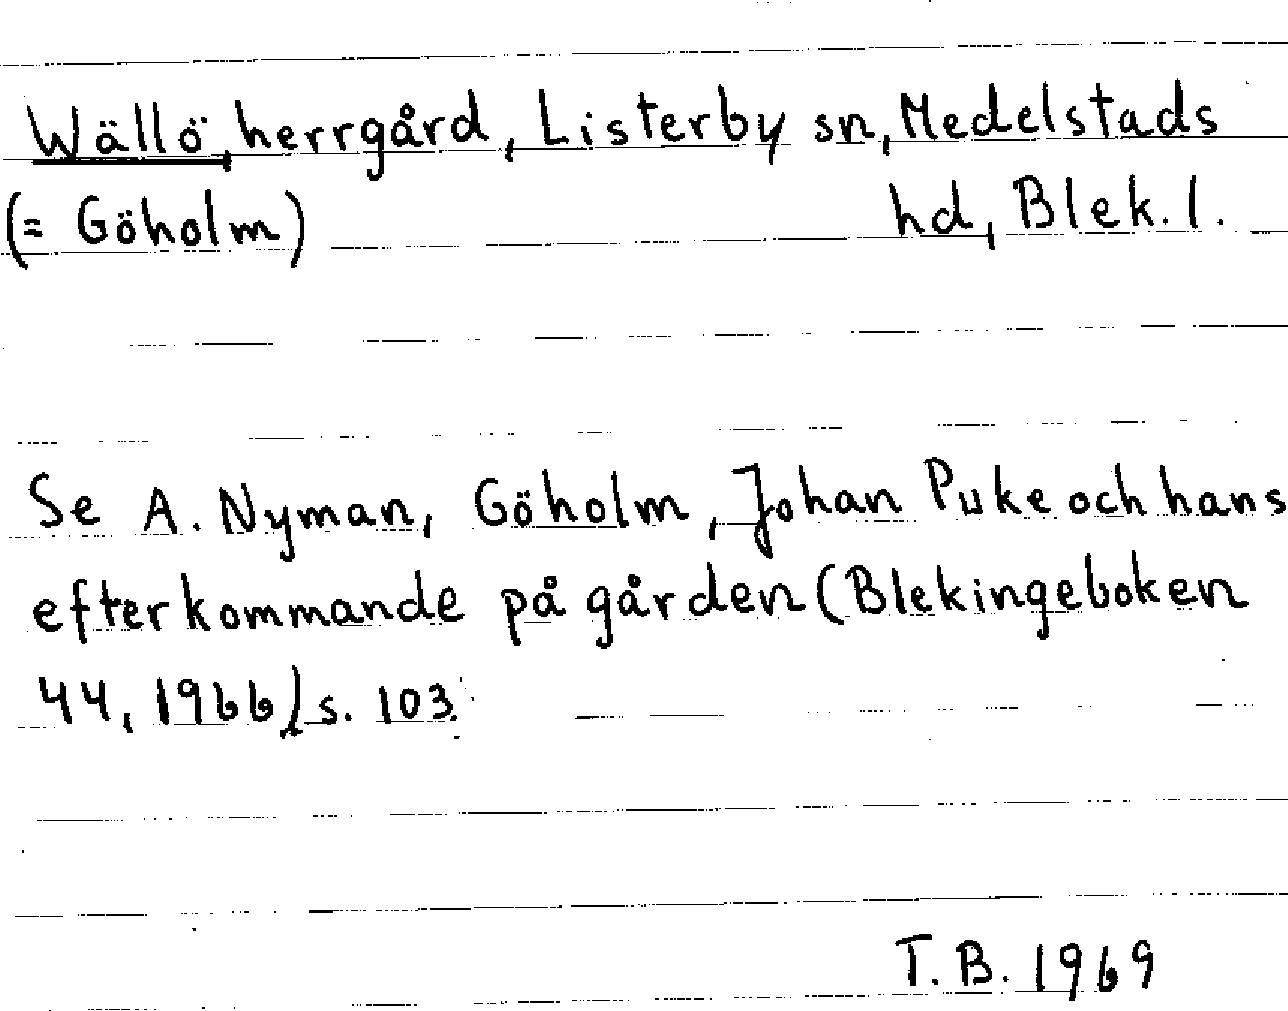 Wällö, herrgård, Listerby sn, Medelstads
(= Göholm) hd, Blek. l.
Se A. Nyman, Göholm, Johan Puke och hans
efterkommande på gården (Blekingeboken
44, 1966) s. 103.
T.B. 1969